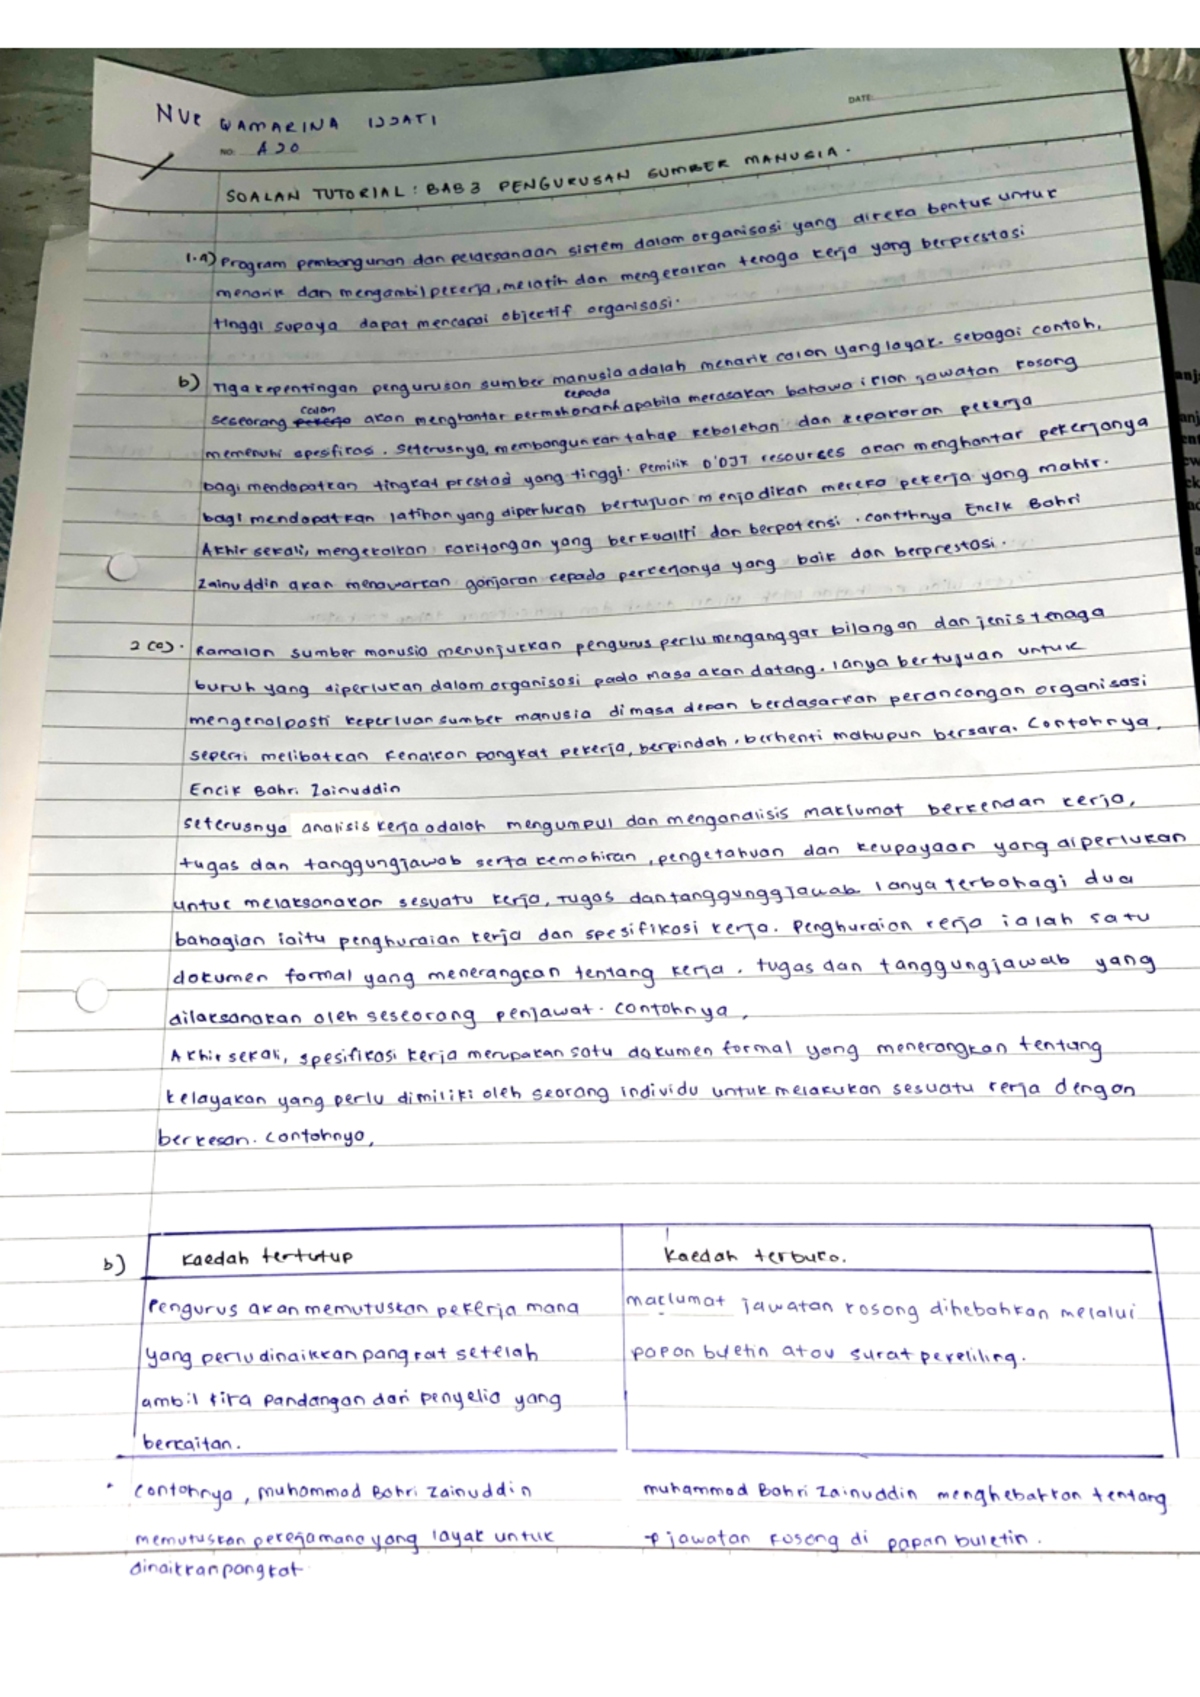 NUR QAMARINA IZZATI
DATE:
NO: A20
SOALAN TUTORIAL : BAB 3 PENGURUSAN SUMBER MANUSIA.
1.a) Program pembangunan dan pelaksanaan sistem dalam organisasi yang direka bentuk untuk
menarik dan mengambil pekerja, melatih dan mengekalkan tenaga kerja yang berprestasi
tinggi supaya dapat mencapai objectif organisasi.
b) Tiga kepentingan pengurusan sumber manusia adalah menarik calon yang layak. sebagai contoh,
seseorang calon akan menghantar permohonan kepada apabila merasakan bahawa iklan jawatan kosong
memenuhi spesifikasi. Seterusnya, membangunkan tahap kebolehan dan kepakaran pekerja
bagi mendapatkan tingkat prestasi yang tinggi. Pemilik D'OJT resources akan menghantar pekerjanya
bagi mendapatkan latihan yang diperlukan bertujuan menjadikan mereka pekerja yang mahir.
Akhir sekali, mengekalkan kakitangan yang berkualiti dan berpotensi. contohnya Encik Bahri
Zainuddin akan menawarkan ganjaran kepada perkerjanya yang baik dan berprestasi.
2 (a). Ramalan sumber manusia menunjukkan pengurus perlu menganggar bilangan dan jenis tenaga
buruh yang diperlukan dalam organisasi pada masa akan datang. Ianya bertujuan untuk
mengenalpasti keperluan sumber manusia di masa depan berdasarkan perancangan organisasi
seperti melibatkan kenaikan pangkat pekerja, berpindah, berhenti mahupun bersara. Contohnya,
Encik Bahri Zainuddin
seterusnya analisis kerja adalah mengumpul dan menganalisis maklumat berkendan kerja,
tugas dan tanggungjawab serta kemahiran, pengetahuan dan keupayaan yang diperlukan
untuk melaksanakan sesuatu kerja, tugas dan tanggunggjawab. Ianya terbahagi dua
bahagian iaitu penghuraian kerja dan spesifikasi kerja. Penghuraian kerja ialah satu
dokumen formal yang menerangkan tentang kerja, tugas dan tanggungjawab yang
dilaksanakan oleh seseorang penjawat. contohnya,
Akhir sekali, spesifikasi kerja merupakan satu dokumen formal yang menerangkan tentang
kelayakan yang perlu dimiliki oleh seorang individu untuk melakukan sesuatu kerja dengan
berkesan. contohnya,
b) Kaedah tertutup
Kaedah terbuka.
Pengurus akan memutuskan pekerja mana
yang perlu dinaikkan pangkat setelah
ambil kira pandangan dari penyelia yang
berkaitan.
maklumat jawatan kosong dihebahkan melalui
papan buletin atau surat pekeliling.
• Contohnya, muhammad Bahri Zainuddin
memutuskan perkeja mana yang layak untuk
dinaikkan pangkat
muhammad Bahri Zainuddin menghebahkan tentang
jawatan kosong di papan buletin.